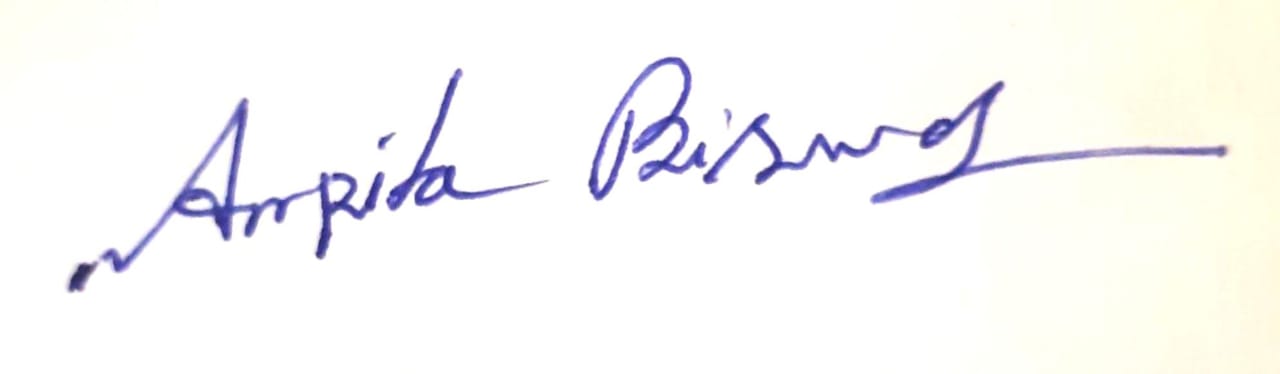 Arpita Biswas